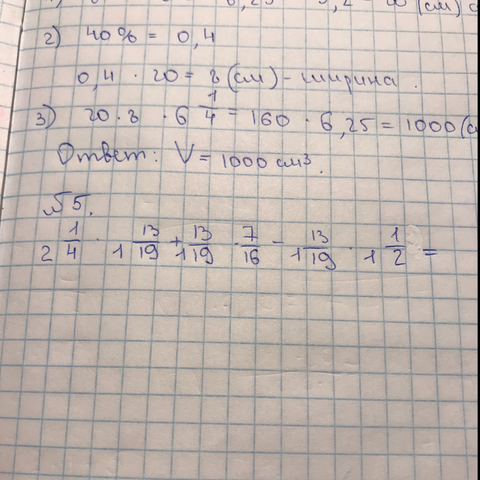 2) 40% = 0,4
0,4 · 20 = 8 (см) - ширина.
3) 20 · 8 · 6 1/4 = 160 · 6,25 = 1000 (с
Ответ: V = 1000 см³.
№5.
2 1/4 · 1 13/19 + 1 13/19 · 7/16 - 1 13/19 · 1 1/2 =